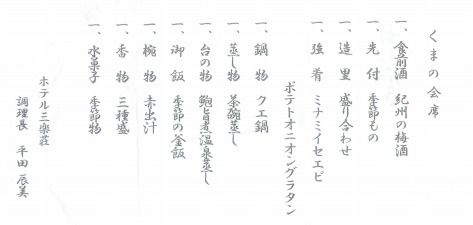 くまの会席
一、食前酒　紀州の梅酒
一、先付　季節もの
一、造里　盛り合わせ
一、強肴　ミナミイセエビ
ポテトオニオングラタン
一、鍋物　クエ鍋
一、蒸し物　茶碗蒸し
一、台の物　鮑旨煮温泉蒸し
一、御飯　季節の釜飯
一、椀物　赤出汁
一、香物　三種盛
一、水菓子　季節物
ホテル三楽荘
調理長　平田辰美